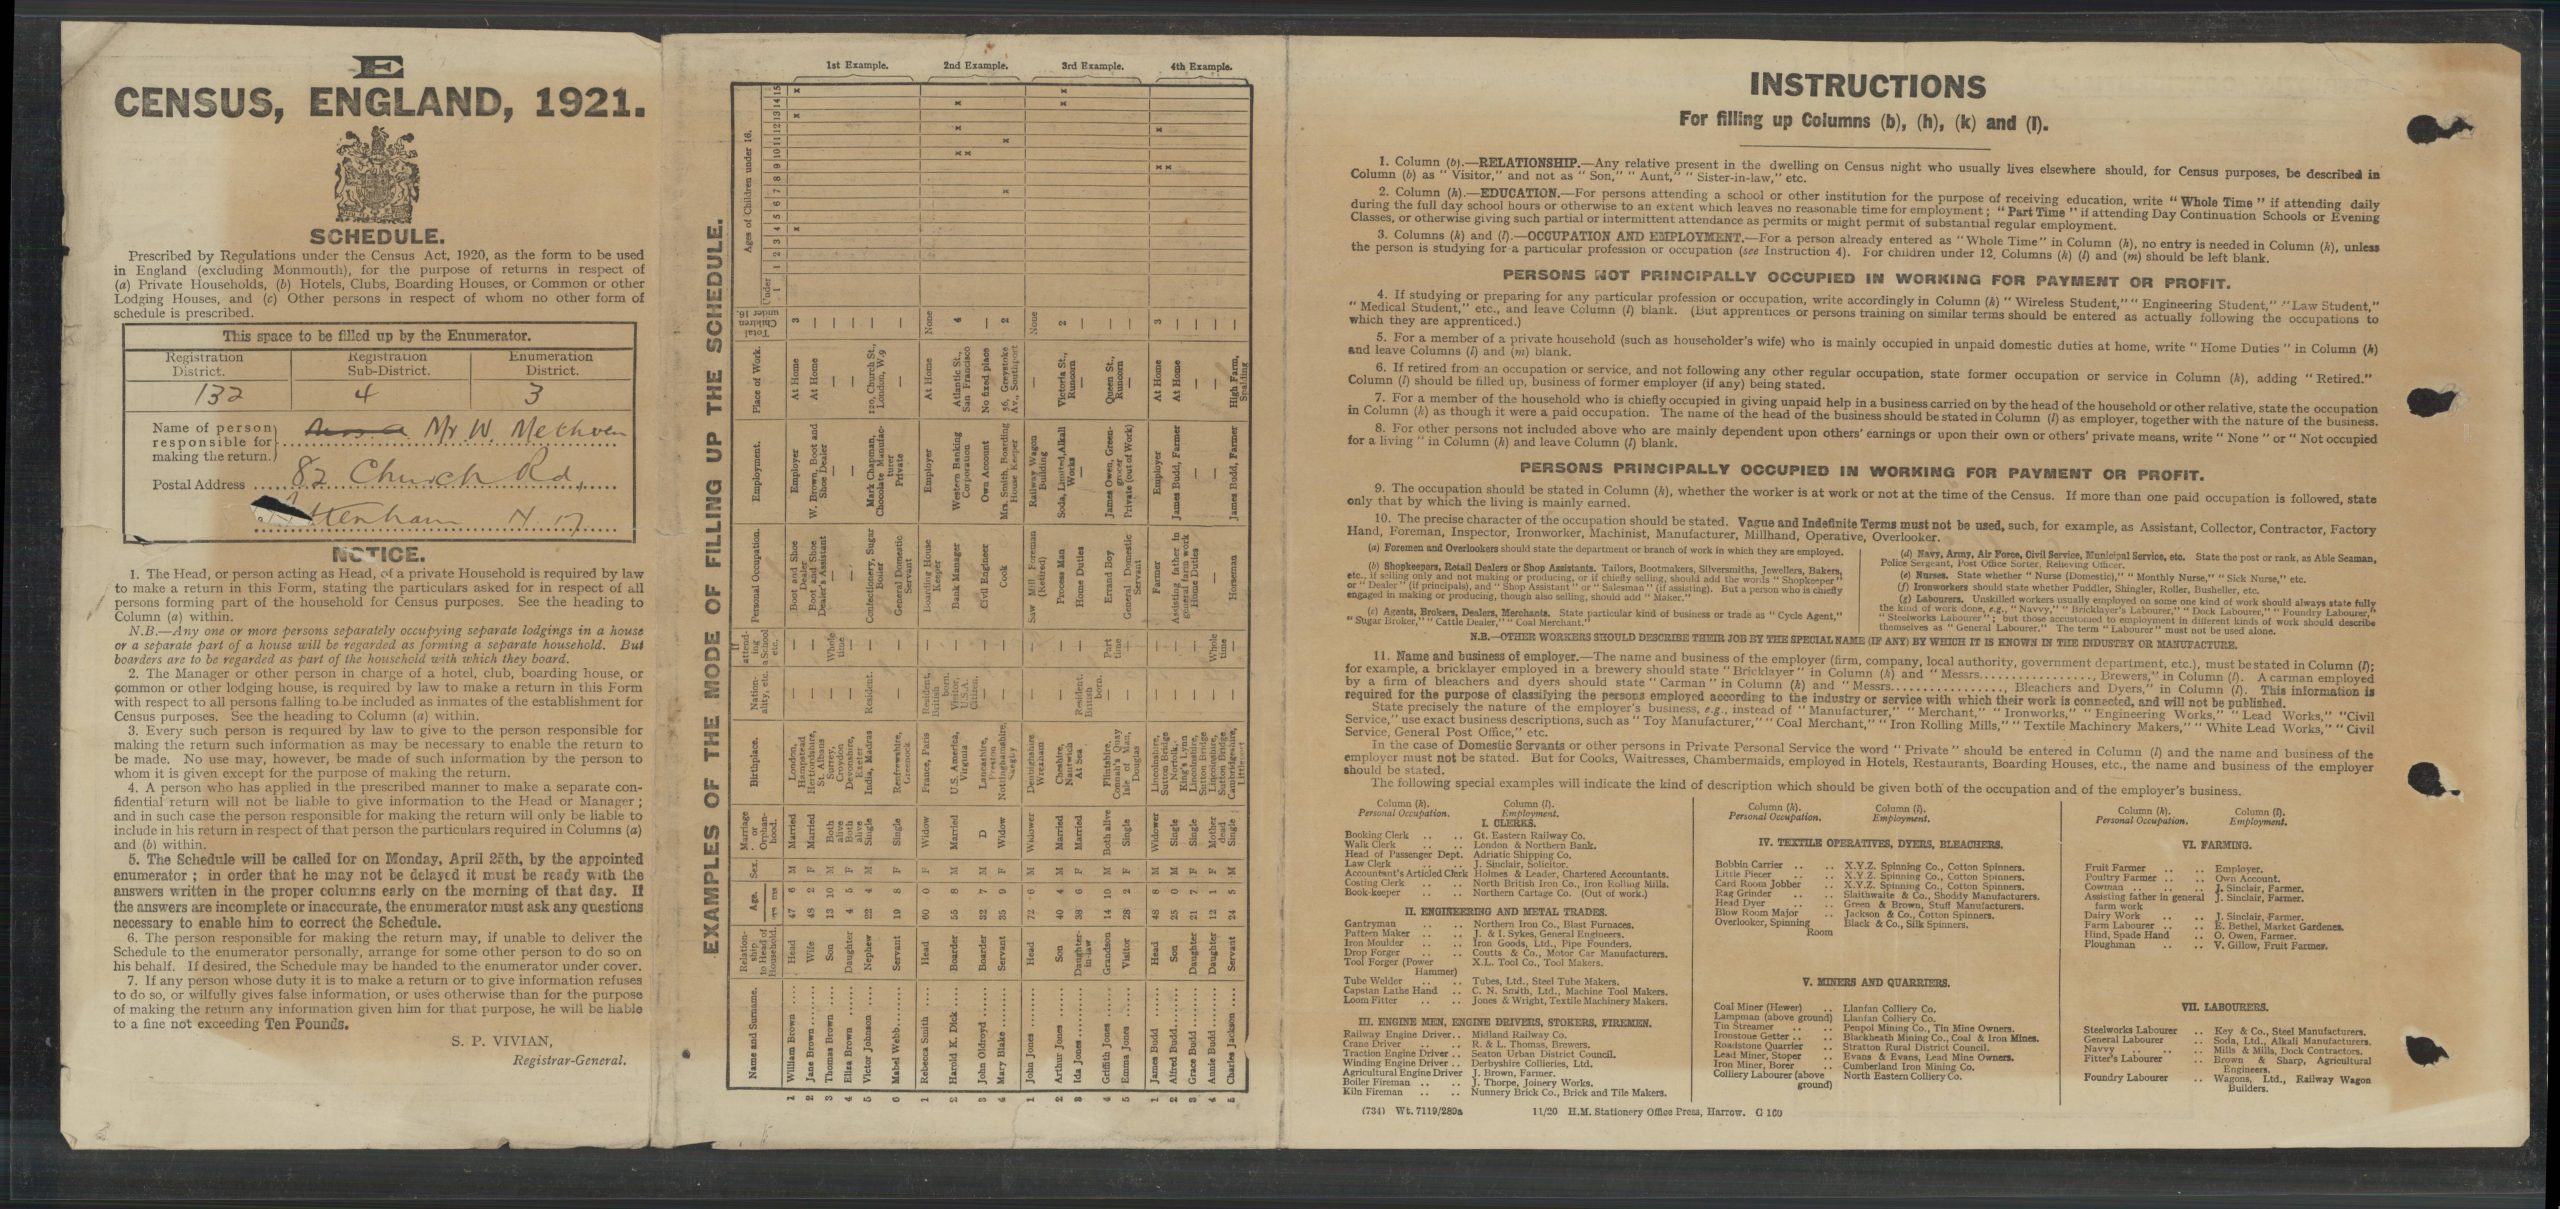 E
CENSUS, ENGLAND, 1921.
SCHEDULE.
Prescribed by Regulations under the Census Act, 1920, as the form to be used
in England (excluding Monmouth), for the purpose of returns in respect of
(a) Private Households, (b) Hotels, Clubs, Boarding Houses, or Common or other
Lodging Houses, and (c) Other persons in respect of whom no other form of
schedule is prescribed.
This space to be filled up by the Enumerator.
Registration District. Registration Sub-District. Enumeration District.
132 4 3
Name of person responsible for making the return. Mr W. Methven
Postal Address 82 Church Rd,
N. 17
NOTICE.
1. The Head, or person acting as Head, of a private Household is required by law
to make a return in this Form, stating the particulars asked for in respect of all
persons forming part of the household for Census purposes. See the heading to
Column (a) within.
N.B.—Any one or more persons separately occupying separate lodgings in a house
or a separate part of a house will be regarded as forming a separate household. But
boarders are to be regarded as part of the household with which they board.
2. The Manager or other person in charge of a hotel, club, boarding house, or
common or other lodging house, is required by law to make a return in this Form
with respect to all persons falling to be included as inmates of the establishment for
Census purposes. See the heading to Column (a) within.
3. Every such person is required by law to give to the person responsible for
making the return such information as may be necessary to enable the return to
be made. No use may, however, be made of such information by the person to
whom it is given except for the purpose of making the return.
4. A person who has applied in the prescribed manner to make a separate con-
fidential return will not be liable to give information to the Head or Manager;
and in such case the person responsible for making the return will only be liable to
include in his return in respect of that person the particulars required in Columns (a)
and (b) within.
5. The Schedule will be called for on Monday, April 25th, by the appointed
enumerator; in order that he may not be delayed it must be ready with the
answers written in the proper columns early on the morning of that day. If
the answers are incomplete or inaccurate, the enumerator must ask any questions
necessary to enable him to correct the Schedule.
6. The person responsible for making the return may, if unable to deliver the
Schedule to the enumerator personally, arrange for some other person to do so on
his behalf. If desired, the Schedule may be handed to the enumerator under cover.
7. If any person whose duty it is to make a return or to give information refuses
to do so, or wilfully gives false information, or uses otherwise than for the purpose
of making the return any information given him for that purpose, he will be liable
to a fine not exceeding Ten Pounds.
S. P. VIVIAN,
Registrar-General.
EXAMPLES OF THE MODE OF FILLING UP THE SCHEDULE.
Name and Surname. Relationship to Head of Household. Age. yrs ms Sex. Marriage or Orphanhood. Birthplace. Nationality, etc. If attending a School etc. Personal Occupation. Employment. Place of Work. Total Children under 16. Ages of Children under 16.
Under 1 1 2 3 4 5 6 7 8 9 10 11 12 13 14 15
1st Example.
1 William Brown Head 47 6 M Married London, Hampstead — — Boot and Shoe Dealer Employer At Home 3 x x x
2 Jane Brown Wife 48 2 F Married Hertfordshire, St. Albans — — Boot and Shoe Dealer's Assistant W. Brown, Boot and Shoe Dealer At Home —
3 Thomas Brown Son 13 10 M Both alive Surrey, Croydon — Whole time — — — —
4 Eliza Brown Daughter 4 5 F Both alive Devonshire, Exeter — — — — — —
5 Victor Johnson Nephew 22 4 M Single India, Madras Resident. — Confectionery, Sugar Boiler Mark Chapman, Chocolate Manufacturer 120, Church St., London, W.9 —
6 Mabel Webb Servant 19 8 F Single Renfrewshire, Greenock — — General Domestic Servant Private — —
2nd Example.
1 Rebecca Smith Head 60 0 F Widow France, Paris Resident, British born. — Boarding House Keeper Employer At Home None
2 Harold K. Dick Boarder 55 8 M Married U.S. America, Virginia Visitor, U.S.A. Citizen. — Bank Manager Western Banking Corporation Atlantic St., San Francisco 4 x x x x
3 John Oldroyd Boarder 32 7 M D Lancashire, Preston — — Civil Engineer Own Account No fixed place —
4 Mary Blake Servant 35 9 F Widow Nottinghamshire, — — Cook Mrs. Smith, Boarding House Keeper 56, Greystoke Av., Southport 2 x x
3rd Example.
1 John Jones Head 72 6 M Widower Denbighshire Wrexham — — Saw Mill Foreman (Retired) Railway Wagon Building — None
2 Arthur Jones Son 40 4 M Married Cheshire, Nantwich — — Process Man Soda, Limited, Alkali Works Victoria St., Runcorn 2 x x
3 Ida Jones Daughter-in-law 38 6 F Married At Sea Resident. British born. — Home Duties — — —
4 Griffith Jones Grandson 14 10 M Both alive Flintshire, Connah's Quay — Part time Errand Boy James Owen, Greengrocer Queen St., Runcorn —
5 Emma Jones Visitor 28 2 F Single Isle of Man, Douglas — — General Domestic Servant Private (out of Work) — —
4th Example.
1 James Budd Head 48 8 M Widower Lincolnshire, Sutton Bridge — — Farmer Employer At Home 3 x x x
2 Alfred Budd Son 25 0 M Single Norfolk, King's Lynn — — Assisting father in general farm work James Budd, Farmer At Home —
3 Grace Budd Daughter 21 7 F Single Lincolnshire, Sutton Bridge — — Home Duties — — —
4 Annie Budd Daughter 12 1 F Mother dead Lincolnshire, Sutton Bridge — Whole time — — — —
5 Charles Jackson Servant 24 5 M Single Cambridgeshire, — — Horseman James Budd, Farmer High Farm, Spalding —
INSTRUCTIONS
For filling up Columns (b), (h), (k) and (l).
1. Column (b).—RELATIONSHIP.—Any relative present in the dwelling on Census night who usually lives elsewhere should, for Census purposes, be described in
Column (b) as "Visitor," and not as "Son," "Aunt," "Sister-in-law," etc.
2. Column (h).—EDUCATION.—For persons attending a school or other institution for the purpose of receiving education, write "Whole Time" if attending daily
during the full day school hours or otherwise to an extent which leaves no reasonable time for employment; "Part Time" if attending Day Continuation Schools or Evening
Classes, or otherwise giving such partial or intermittent attendance as permits or might permit of substantial regular employment.
3. Columns (k) and (l).—OCCUPATION AND EMPLOYMENT.—For a person already entered as "Whole Time" in Column (h), no entry is needed in Column (k), unless
the person is studying for a particular profession or occupation (see Instruction 4). For children under 12, Columns (k) (l) and (m) should be left blank.
PERSONS NOT PRINCIPALLY OCCUPIED IN WORKING FOR PAYMENT OR PROFIT.
4. If studying or preparing for any particular profession or occupation, write accordingly in Column (k) "Wireless Student," "Engineering Student," "Law Student,"
"Medical Student," etc., and leave Column (l) blank. (But apprentices or persons training on similar terms should be entered as actually following the occupations to
which they are apprenticed.)
5. For a member of a private household (such as householder's wife) who is mainly occupied in unpaid domestic duties at home, write "Home Duties" in Column (k)
and leave Columns (l) and (m) blank.
6. If retired from an occupation or service, and not following any other regular occupation, state former occupation or service in Column (k), adding "Retired."
Column (l) should be filled up, business of former employer (if any) being stated.
7. For a member of the household who is chiefly occupied in giving unpaid help in a business carried on by the head of the household or other relative, state the occupation
in Column (k) as though it were a paid occupation. The name of the head of the business should be stated in Column (l) as employer, together with the nature of the business.
8. For other persons not included above who are mainly dependent upon others' earnings or upon their own or others' private means, write "None" or "Not occupied
for a living" in Column (k) and leave Column (l) blank.
PERSONS PRINCIPALLY OCCUPIED IN WORKING FOR PAYMENT OR PROFIT.
9. The occupation should be stated in Column (k), whether the worker is at work or not at the time of the Census. If more than one paid occupation is followed, state
only that by which the living is mainly earned.
10. The precise character of the occupation should be stated. Vague and Indefinite Terms must not be used, such, for example, as Assistant, Collector, Contractor, Factory
Hand, Foreman, Inspector, Ironworker, Machinist, Manufacturer, Millhand, Operative, Overlooker.
(a) Foremen and Overlookers should state the department or branch of work in which they are employed.
(b) Shopkeepers, Retail Dealers or Shop Assistants. Tailors, Bootmakers, Silversmiths, Jewellers, Bakers,
etc., if selling only and not making or producing, or if chiefly selling, should add the words "Shopkeeper"
or "Dealer" (if principals), and "Shop Assistant" or "Salesman" (if assisting). But a person who is chiefly
engaged in making or producing, though also selling, should add "Maker."
(c) Agents, Brokers, Dealers, Merchants. State particular kind of business or trade as "Cycle Agent,"
"Sugar Broker," "Cattle Dealer," "Coal Merchant."
(d) Navy, Army, Air Force, Civil Service, Municipal Service, etc. State the post or rank, as Able Seaman,
Police Sergeant, Post Office Sorter, Relieving Officer.
(e) Nurses. State whether "Nurse (Domestic)," "Monthly Nurse," "Sick Nurse," etc.
(f) Ironworkers should state whether Puddler, Shingler, Roller, Busheller, etc.
(g) Labourers. Unskilled workers usually employed on some one kind of work should always state fully
the kind of work done, e.g., "Navvy," "Bricklayer's Labourer," "Dock Labourer," "Foundry Labourer,"
"Steelworks Labourer"; but those accustomed to employment in different kinds of work should describe
themselves as "General Labourer." The term "Labourer" must not be used alone.
N.B.—OTHER WORKERS SHOULD DESCRIBE THEIR JOB BY THE SPECIAL NAME (IF ANY) BY WHICH IT IS KNOWN IN THE INDUSTRY OR MANUFACTURE.
11. Name and business of employer.—The name and business of the employer (firm, company, local authority, government department, etc.), must be stated in Column (l);
for example, a bricklayer employed in a brewery should state "Bricklayer" in Column (k) and "Messrs................, Brewers," in Column (l). A carman employed
by a firm of bleachers and dyers should state "Carman" in Column (k) and "Messrs................, Bleachers and Dyers," in Column (l). This information is
required for the purpose of classifying the persons employed according to the industry or service with which their work is connected, and will not be published.
State precisely the nature of the employer's business, e.g., instead of "Manufacturer," "Merchant," "Ironworks," "Engineering Works," "Lead Works," "Civil
Service," use exact business descriptions, such as "Toy Manufacturer," "Coal Merchant," "Iron Rolling Mills," "Textile Machinery Makers," "White Lead Works," "Civil
Service, General Post Office," etc.
In the case of Domestic Servants or other persons in Private Personal Service the word "Private" should be entered in Column (l) and the name and business of the
employer must not be stated. But for Cooks, Waitresses, Chambermaids, employed in Hotels, Restaurants, Boarding Houses, etc., the name and business of the employer
should be stated.
The following special examples will indicate the kind of description which should be given both of the occupation and of the employer's business.
Column (k). Personal Occupation. Column (l). Employment.
I. CLERKS.
Booking Clerk .. .. Gt. Eastern Railway Co.
Walk Clerk .. .. London & Northern Bank.
Head of Passenger Dept. Adriatic Shipping Co.
Law Clerk .. .. J. Sinclair, Solicitor.
Accountant's Articled Clerk Holmes & Leader, Chartered Accountants.
Costing Clerk .. .. North British Iron Co., Iron Rolling Mills.
Book-keeper .. .. Northern Cartage Co. (Out of work.)
II. ENGINEERING AND METAL TRADES.
Gantryman .. .. Northern Iron Co., Blast Furnaces.
Pattern Maker .. .. J. & I. Sykes, General Engineers.
Iron Moulder .. .. Iron Goods, Ltd., Pipe Founders.
Drop Forger .. .. Coutts & Co., Motor Car Manufacturers.
Tool Forger (Power Hammer) X.L. Tool Co., Tool Makers.
Tube Welder .. .. Tubes, Ltd., Steel Tube Makers.
Capstan Lathe Hand .. C. N. Smith, Ltd., Machine Tool Makers.
Loom Fitter .. .. Jones & Wright, Textile Machinery Makers.
III. ENGINE MEN, ENGINE DRIVERS, STOKERS, FIREMEN.
Railway Engine Driver .. Midland Railway Co.
Crane Driver .. .. R. & L. Thomas, Brewers.
Traction Engine Driver .. Seaton Urban District Council.
Winding Engine Driver .. Derbyshire Collieries, Ltd.
Agricultural Engine Driver J. Brown, Farmer.
Boiler Fireman .. .. J. Thorpe, Joinery Works.
Kiln Fireman .. .. Nunnery Brick, Brick and Tile Makers.
Column (k). Personal Occupation. Column (l). Employment.
IV. TEXTILE OPERATIVES, DYERS, BLEACHERS.
Bobbin Carrier .. .. X.Y.Z. Spinning Co., Cotton Spinners.
Little Piecer .. .. X.Y.Z. Spinning Co., Cotton Spinners.
Card Room Jobber .. X.Y.Z. Spinning Co., Cotton Spinners.
Rag Grinder .. .. Slaithwaite & Co., Shoddy Manufacturers.
Head Dyer .. .. Green & Brown, Stuff Manufacturers.
Blow Room Major .. Jackson & Co., Cotton Spinners.
Overlooker, Spinning Room Black & Co., Silk Spinners.
V. MINERS AND QUARRIERS.
Coal Miner (Hewer) .. Llanfan Colliery Co.
Lampman (above ground) Llanfan Colliery Co.
Tin Streamer .. .. Penpol Mining Co., Tin Mine Owners.
Ironstone Getter .. .. Blackheath Mining Co., Coal & Iron Mines.
Roadstone Quarrier .. Stratton Rural District Council.
Lead Miner, Stoper .. Evans & Evans, Lead Mine Owners.
Iron Miner, Borer .. Cumberland Iron Mining Co.
Colliery Labourer (above ground) North Eastern Colliery Co.
Column (k). Personal Occupation. Column (l). Employment.
VI. FARMING.
Fruit Farmer .. .. Employer.
Poultry Farmer .. .. Own Account.
Cowman .. .. J. Sinclair, Farmer.
Assisting father in general farm work J. Sinclair, Farmer.
Dairy Work .. .. J. Sinclair, Farmer.
Farm Labourer .. .. E. Bethel, Market Gardener.
Hind, Spade Hand .. O. Owen, Farmer.
Ploughman .. .. V. Gillow, Fruit Farmer.
VII. LABOURERS.
Steelworks Labourer .. Key & Co., Steel Manufacturers.
General Labourer .. Soda, Ltd., Alkali Manufacturers.
Navvy .. .. Mills & Mills, Dock Contractors.
Fitter's Labourer .. Brown & Sharp, Agricultural Engineers.
Foundry Labourer .. Wagons, Ltd., Railway Wagon Builders.
(734) Wt. 7119/289a 11/20 H.M. Stationery Office Press, Harrow. G 160